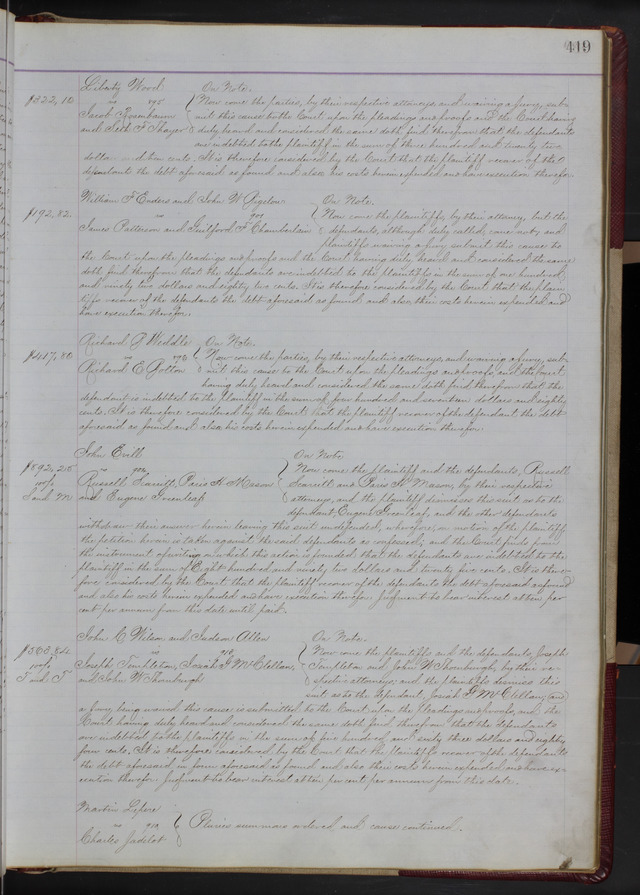 419
Liberty Wood On Note.
$322,10 vs 795 Now come the parties, by their respective attorneys, and waiving a jury, sub-
Jacob Rosenbaum mit this cause to the Court upon the pleadings and proofs and the Court having
and Seth F Thayer duly heard and considered the same doth find therefrom that the defendants
are indebted to the plaintiff in the sum of three hundred and twenty two
dollars and ten cents. It is therefore considered by the Court that the plaintiff recover of the
defendants the debt aforesaid as found and also his costs herein expended and have execution therefor.
William F Enders and John W Bigelow On Note.
$192,82. vs Now come the plaintiffs, by their attorney, but the
James Patterson and Guilford F Chamberlain defendants, although duly called, come not; and
plaintiffs waiving a jury submit this cause to
the Court upon the pleadings and proofs and the Court having duly heard and considered the same
doth find therefrom that the defendants are indebted to the plaintiffs in the sum of one hundred
and ninety two dollars and eighty two cents. It is therefore considered by the Court that the plain-
tiffs recover of the defendants the debt aforesaid as found and also their costs herein expended and
have execution therefor.
Richard P Weddle On Note.
$417,80 vs Now come the parties, by their respective attorneys, and waiving a jury, sub-
Richard E mit this cause to the Court upon the pleadings and proofs, and the Court
having duly heard and considered the same doth find therefrom that the
defendant is indebted to the plaintiff in the sum of four hundred and seventeen dollars and eighty
cents. It is therefore considered by the Court that the plaintiff recover of the defendant the debt
aforesaid as found and also his costs herein expended and have execution therefor.
John Evill On Note.
$892,25 vs Now come the plaintiff and the defendants, Russell
Russell Jarritt, Paris H Mason Jarritt and Paris H Mason, by their respective
and Eugene Greenleaf attorneys, and the plaintiff dismisses this suit as to the
defendant Eugene Greenleaf, and the other defendants
withdraw their answer herein leaving this suit undefended, wherefore, on motion of the plaintiff,
the petition herein is taken against the said defendants as confessed; and the Court finds from
the instrument of writing on which this action is founded that the defendants are indebted to the
plaintiff in the sum of Eight hundred and ninety two dollars and twenty five cents. It is there-
fore considered by the Court that the plaintiff recover of the defendants the debt aforesaid as found
and also his costs herein expended and have execution therefor. Judgment to bear interest at ten per
cent per annum from this date until paid.
John C Wilson and Judson Allen On Note.
$563,84. vs Now come the plaintiffs and the defendants, Joseph
Joseph Templeton, Josiah G McClellan, Templeton and John W Thornburgh, by their re-
and John W Thornburgh spective attorneys; and the plaintiffs dismiss this
suit as to the defendant, Josiah G McClellan; and
a jury being waived this cause is submitted to the Court upon the pleadings and proofs, and the
Court having duly heard and considered the same doth find therefrom that the defendants
are indebted to the plaintiffs in the sum of five hundred and sixty three dollars and eighty
four cents. It is therefore considered by the Court that the plaintiffs recover of the defendants
the debt aforesaid in form aforesaid as found and also their costs herein expended and have ex-
ecution therefor. Judgment to bear interest at ten per cent per annum from this date.
Martin Lepere
vs Pluries summons ordered, and cause continued.
Charles Jadelot